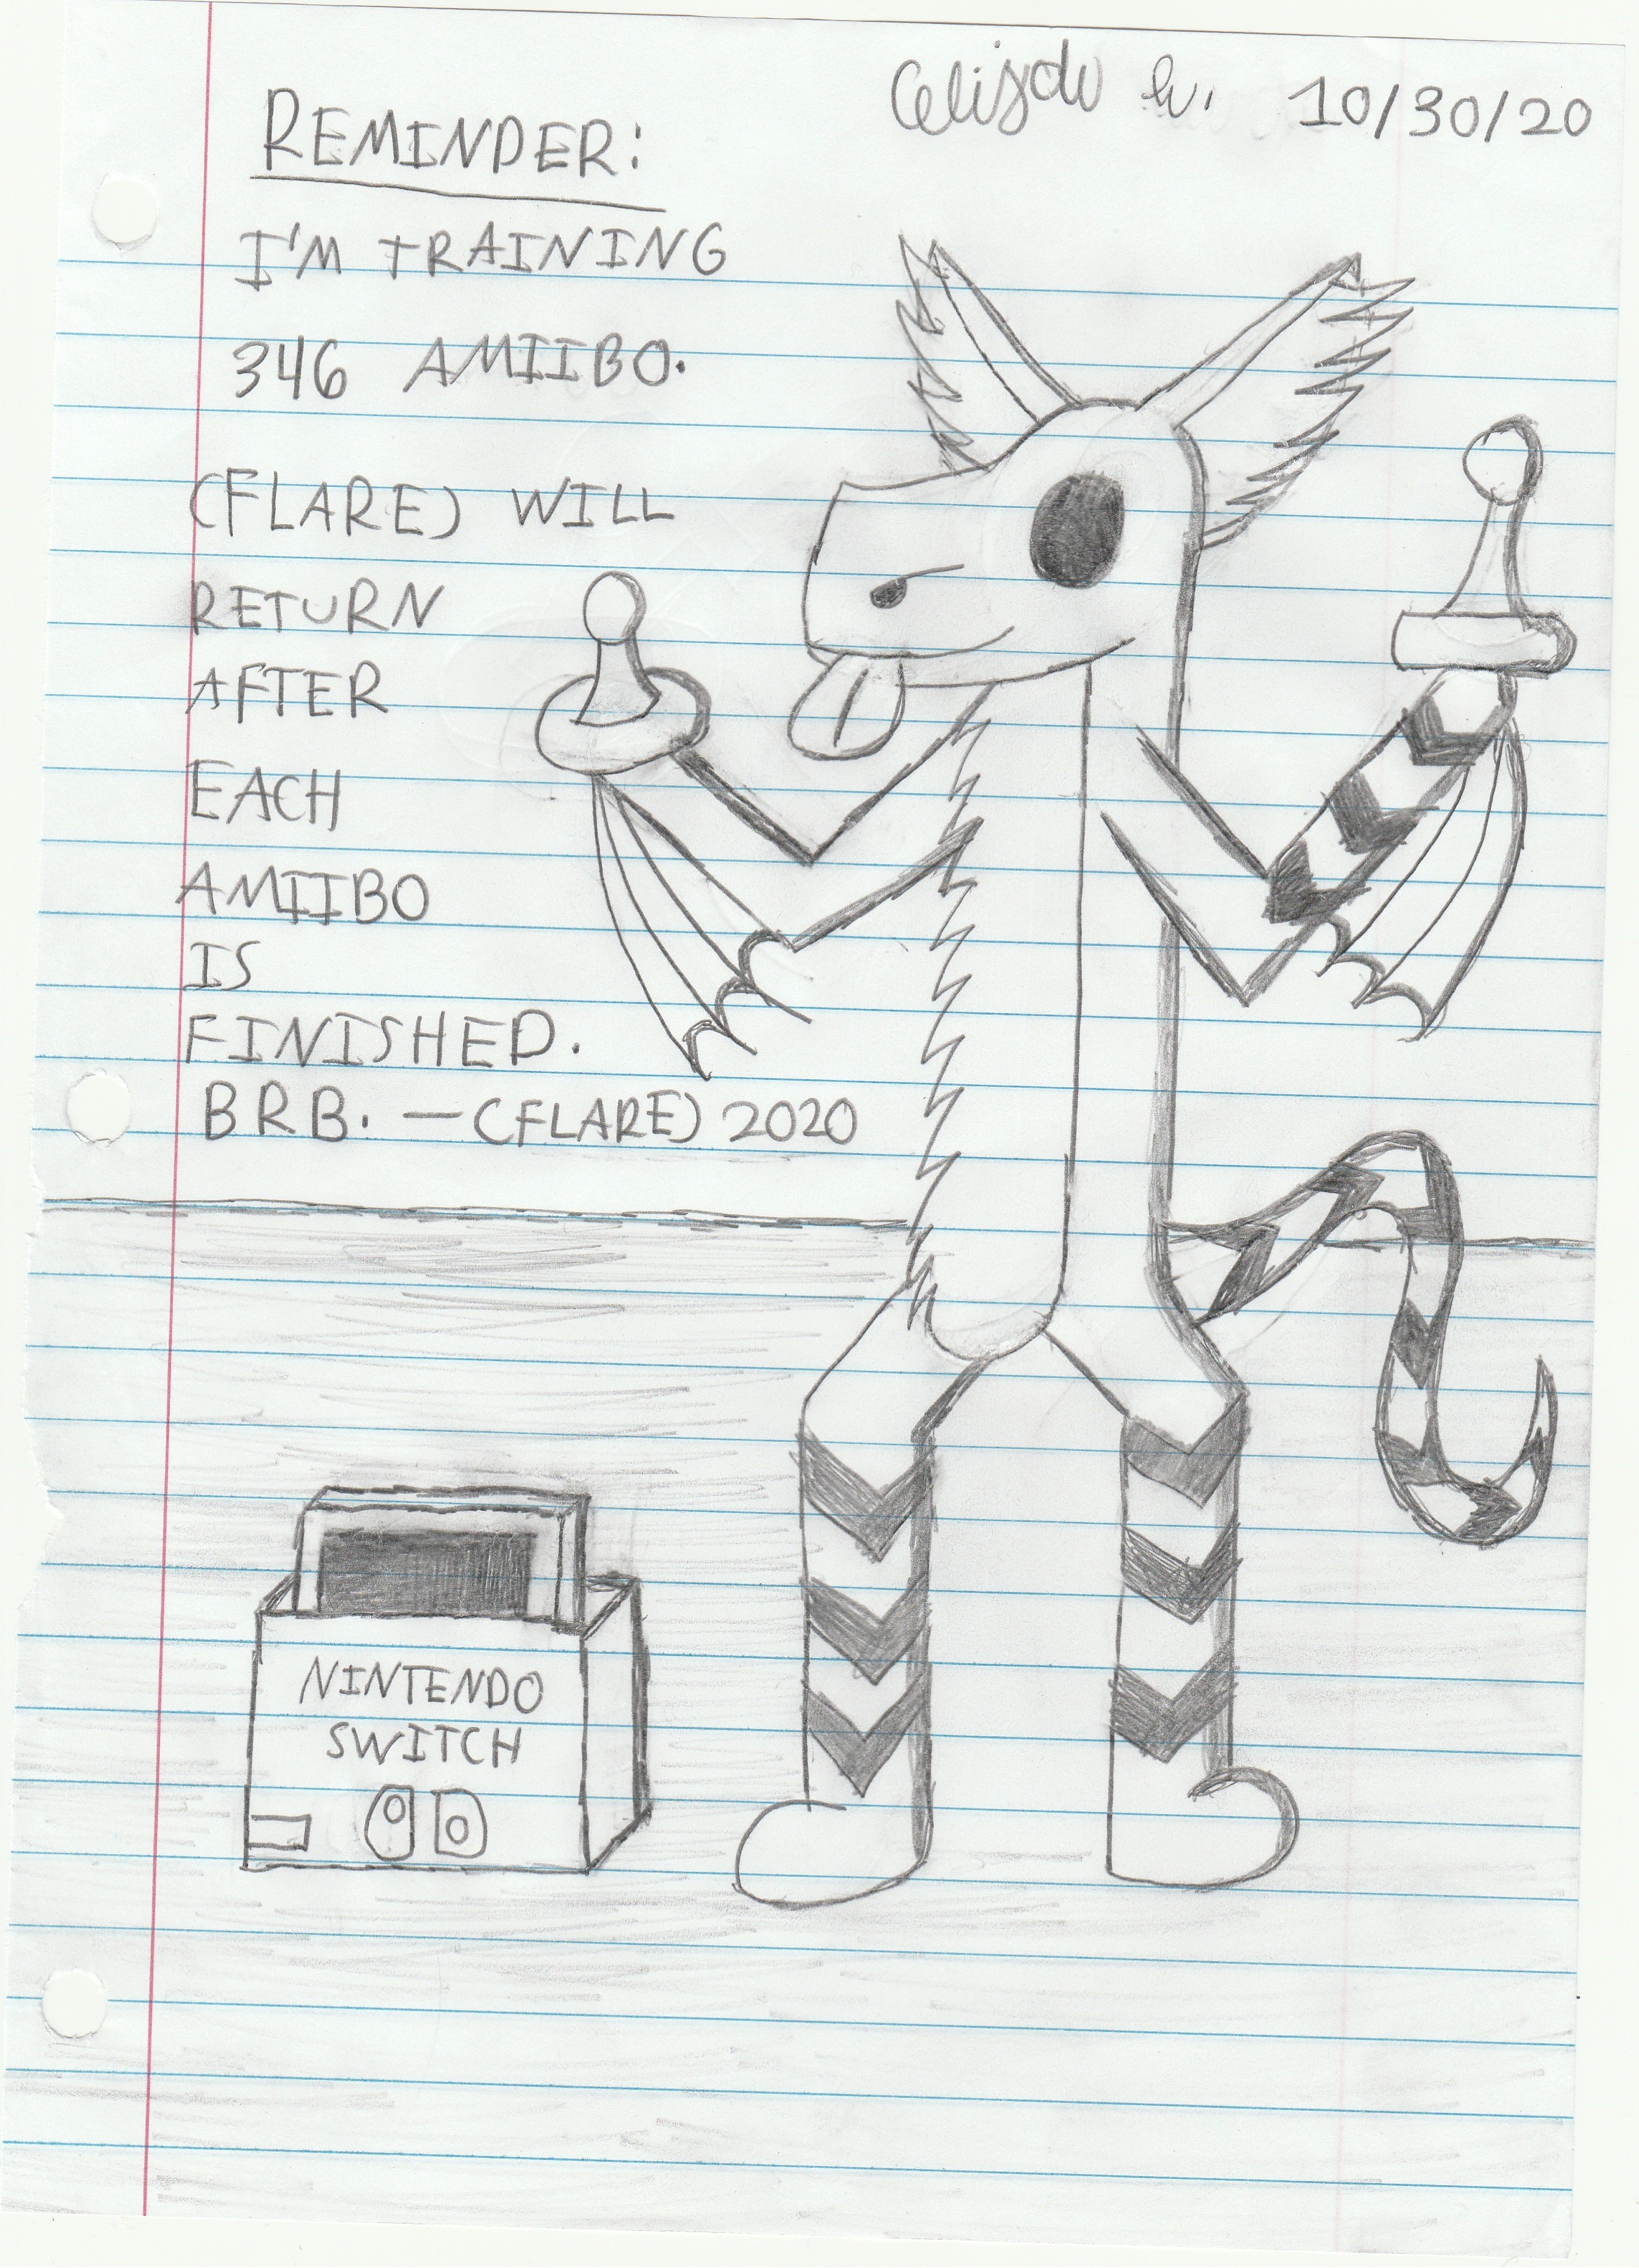 10/30/20
REMINDER:
I'M TRAINING
346 AMIIBO.
(FLARE) WILL
RETURN
AFTER
EACH
AMIIBO
IS
FINISHED.
BRB. — (FLARE) 2020
NINTENDO
SWITCH